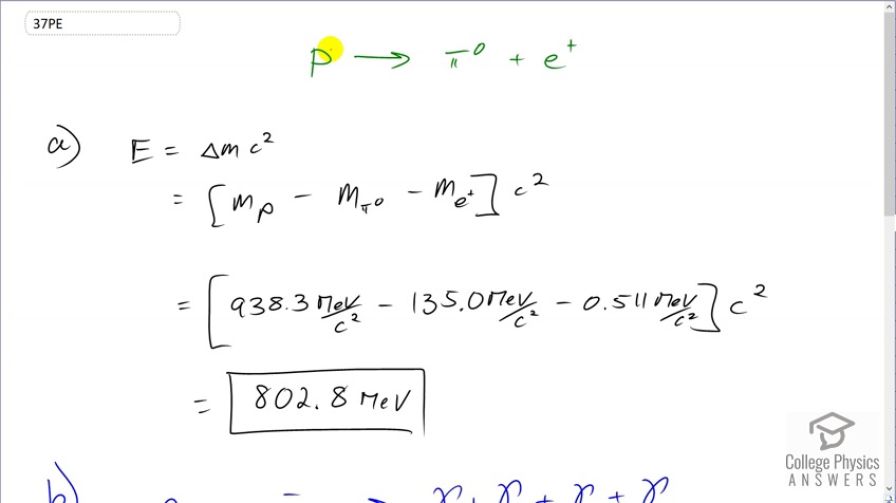 37PE
p → π⁰ + e⁺
a) E = Δm c²
= [m_p − m_π⁰ − m_e⁺] c²
= [938.3 MeV/c² − 135.0 MeV/c² − 0.511 MeV/c²] c²
= 802.8 MeV
b) → γ + γ + γ + γ
College Physics
ANSWERS